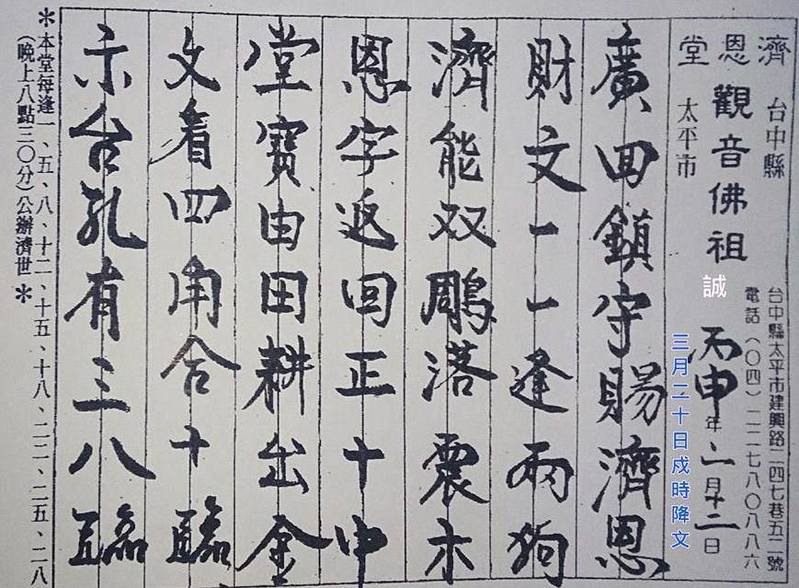 濟恩堂
台中縣
太平市
觀音佛祖
誠
台中縣太平市建興路二四七巷五二號
電話（〇四）二二七八〇八八六
丙申年、一月十二日
三月二十日戍時降文
廣回鎮守賜濟恩
財文一一逢兩狗
濟能双鵰落震木
恩字返回正十申
堂寶由田耕出金
文着四角合十臨
示台孔有三八臨
＊本堂每逢一、五、八、十二、十五、十八、二二、二五、二八
（晚上八點三〇分）公辦濟世＊